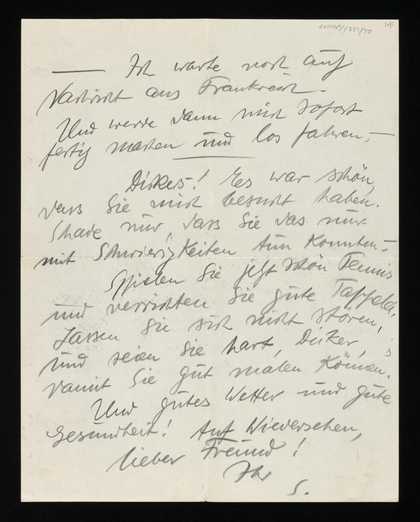 — Ich warte noch auf
Nachricht aus Frankreich.
Und werde dann mich sofort
fertig machen und los fahren. —
Dickes! Es war schön,
dass Sie mich besucht haben.
Schade nur, dass Sie das nur
mit Schwierigkeiten tun konnten —
Spielen Sie jetzt schön Tennis
und verrichten Sie gute
Lassen Sie sich nicht stören,
und seien Sie hart, Dicker,
damit Sie gut malen können.
Und gutes Wetter und gute
Gesundheit! Auf Wiedersehen,
lieber Freund!
Ihr
S.